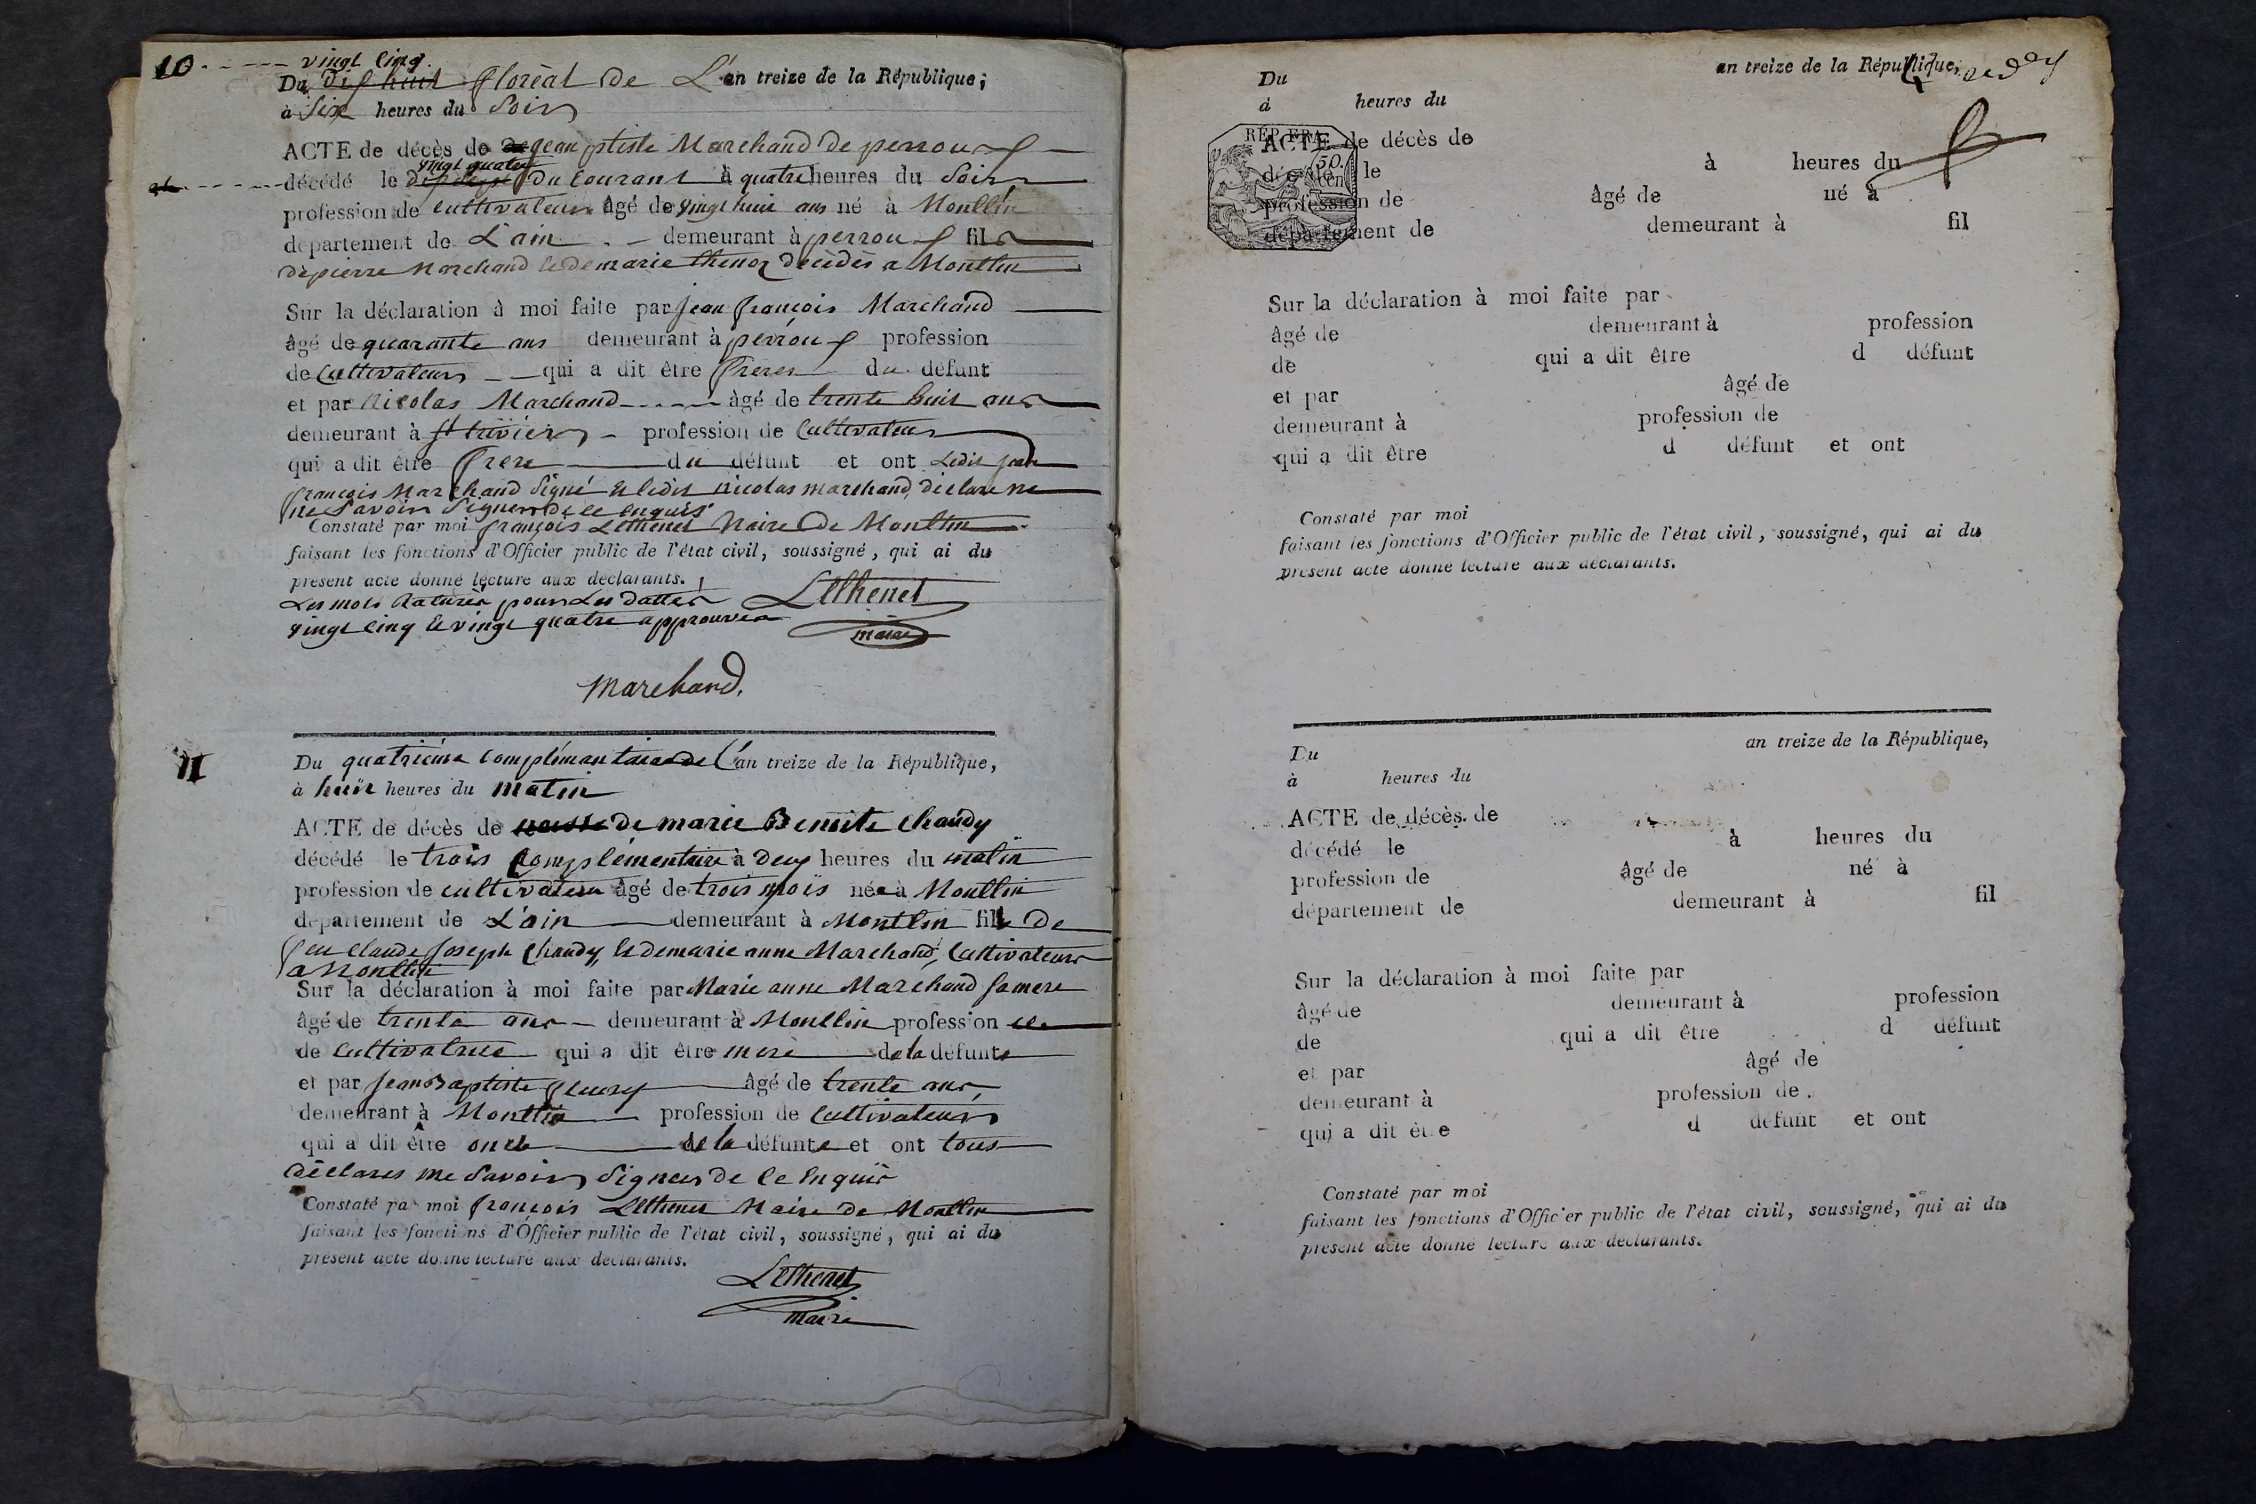 10 vingt cinq
Du dix huit floréal de L'an treize de la République ;
à Six heures du Soir
ACTE de décès de jean ptiste Marchand de perrouf
vingt quatre
décédé le du Courant à quatre heures du Soir
profession de cultivateur âgé de vingt huit ans né à Montlin
département de L'ain demeurant à perrouf fils
de pierre Marchand et de marie thenoz décédés a Montlin
Sur la déclaration à moi faite par Jean françois Marchand
âgé de quarante ans demeurant à perrouf profession
de Cultivateur qui a dit être frere du défunt
et par Nicolas Marchand âgé de trente huit ans
demeurant à St trivier profession de Cultivateur
qui a dit être frere du défunt et ont Ledit jean
françois Marchand Signé Et ledit nicolas marchand déclare ne
ne Savoir Signer de ce enquis
Constaté par moi françois Lethenet Maire De Montlin
faisant les fonctions d'Officier public de l'état civil, soussigné, qui ai du
présent acte donné lecture aux déclarants.
Les mots Raturés pour Les dattes Lethenet
vingt cinq et vingt quatre approuvés maire
Marchand.
11
Du quatrième complémentaire de L'an treize de la République,
à huit heures du matin
ACTE de décès de de marie Benoite Chaudy
décédé le trois Complémentaire à deux heures du matin
profession de cultivateur âgé de trois mois née à Montlin
département de L'ain demeurant à Montlin fille de
feu Claude Joseph Chaudy, et de marie anne Marchand, Cultivateurs
a Montlin
Sur la déclaration à moi faite par Marie anne Marchand sa mere
âgé de trente ans demeurant à Montlin profession de
de Cultivatrice qui a dit être mere de la défunte
et par Jean Baptiste fleury âgé de trente ans
demeurant à Montlin profession de Cultivateur
qui a dit être oncle de la défunte et ont tous
déclarés ne Savoir Signer de ce Enquis
Constaté par moi françois Lethenet Maire de Montlin
faisant les fonctions d'Officier public de l'état civil, soussigné, qui ai du
présent acte donné lecture aux déclarants.
Lethenet
maire
Du an treize de la République,
à heures du
REP. FRA.
50.
CEN
ACTE de décès de
décédé le à heures du
profession de âgé de né à
département de demeurant à fil
Sur la déclaration à moi faite par
âgé de demeurant à profession
de qui a dit être d défunt
et par âgé de
demeurant à profession de
qui a dit être d défunt et ont
Constaté par moi
faisant les fonctions d'Officier public de l'état civil, soussigné, qui ai du
présent acte donné lecture aux déclarants.
Du an treize de la République,
à heures du
ACTE de décès de
décédé le à heures du
profession de âgé de né à
département de demeurant à fil
Sur la déclaration à moi faite par
âgé de demeurant à profession
de qui a dit être d défunt
et par âgé de
demeurant à profession de
qui a dit être d défunt et ont
Constaté par moi
faisant les fonctions d'Officier public de l'état civil, soussigné, qui ai du
présent acte donné lecture aux déclarants.